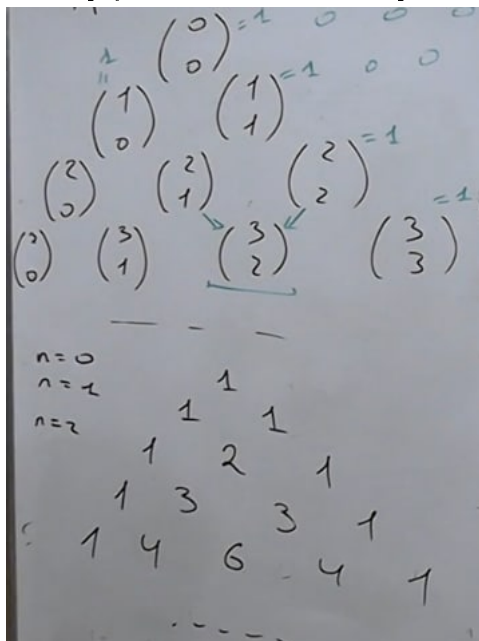 (0 0) = 1 0 0 0
1
=
(1 0) (1 1) = 1 0 0
(2 0) (2 1) (2 2) = 1
(3 0) (3 1) (3 2) (3 3) = 1
n = 0
1
n = 1
1 1
n = 2
1 2 1
1 3 3 1
1 4 6 4 1